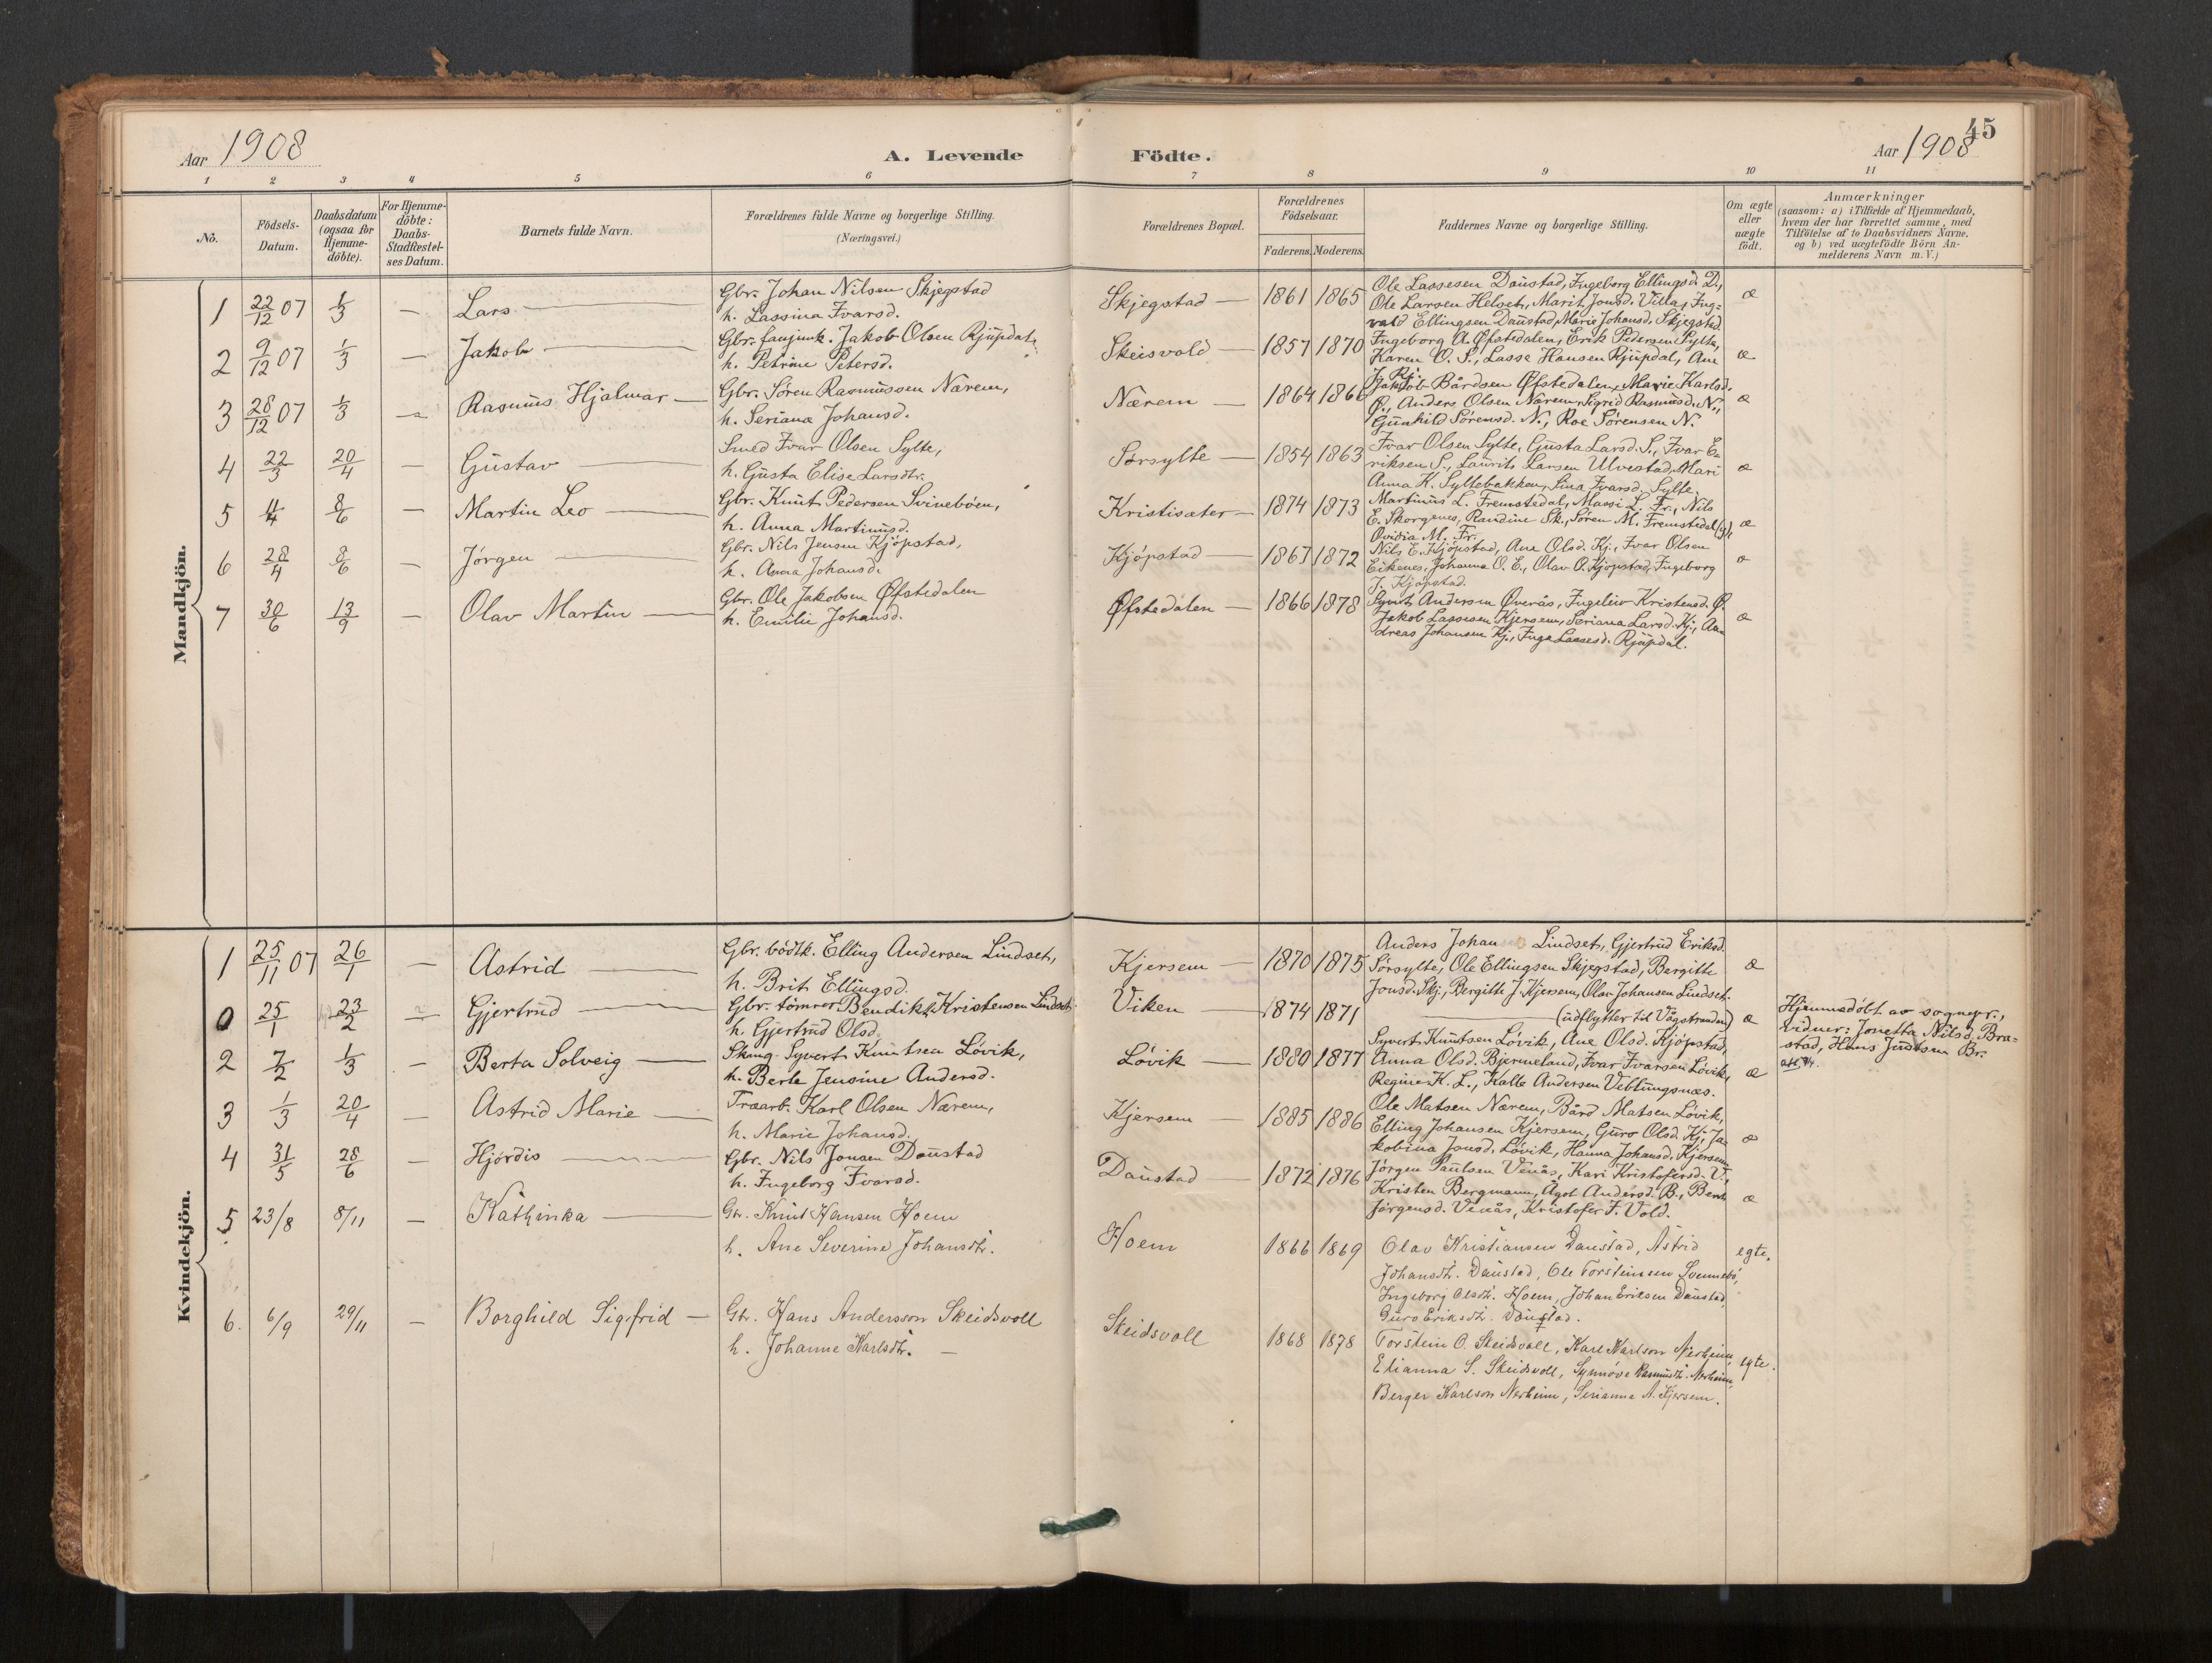 45
Aar 1908
A. Levende Födte.
Aar 1908
1 2 3 4 5 6 7 8 9 10 11
No.
Födsels-
Datum.
Daabsdatum
(ogsaa for
Hjemme-
döbte).
For Hjemme-
döbte:
Daabs-
Stadfæstel-
ses Datum.
Barnets fulde Navn.
Forældrenes fulde Navne og borgerlige Stilling.
(Næringsvei.)
Forældrenes Bopæl.
Forældrenes
Födselsaar.
Faderens. Moderens.
Faddernes Navne og borgerlige Stilling.
Om ægte
eller
uægte
födt.
Anmærkninger
(saasom: a) i Tilfælde af Hjemmedaab,
hvem der har forrettet samme, med
Tilföielse af to Daabsvidners Navne.
og b) ved uægtefödte Börn An-
melderens Navn m.V.)
Mandkjön.
1 22/12 07 1/3 — Lars — Gbr. Johan Nilsen Skjegstad
h. Lassina Ivarsd.
Skjegstad — 1861 1865 Ole Lassesen Daustad, Ingeborg Ellingsd. D.,
Ole Larsen Helset, Marit Jonsd. Villa, Ing-
vald Ellingsen Daustad, Marie Johansd. Skjegstad.
æ
2 9/12 07 1/3 — Jakob — Gbr. Jakob Olsen Rjüpdal,
h. Petrine Petersd.
Skeisvold — 1857 1870 Ingeborg A. Øfstedalen, Erik Pedersen Sylte,
Karen O. S., Lasse Hansen Rjüpdal, Ane
J. Rj.
æ
3 28/12 07 1/3 — Rasmus Hjalmar — Gbr. Søren Rasmussen Nærem,
h. Seriana Johansd.
Nærem — 1864 1866 Jakob Bårdsen Øfstedalen, Marie Karlsd.
Ø., Anders Olsen Nærem, Sigrid Rasmusd. N.,
Gunhild Sørensd. N., Roe Sørensen N.
æ
4 22/3 20/4 — Gustav — Smed Ivar Olsen Sylte,
h. Gusta Elise Larsdtr.
Sørsylte — 1854 1863 Ivar Olsen Sylte, Gusta Larsd. S., Ivar E-
riksen S., Laurits Larsen Ulvestad, Mari
Anna K. Syltebakken, Lina Ivarsd. Sylte.
æ
5 4/4 8/6 — Martin Leo — Gbr. Knut Pedersen Svinebøen,
h. Anna Martinusd.
Kristisæter — 1874 1873 Martinus L. Fremstedal, Massi L. Fr., Nils
E. Skorgenes, Randine Sk., Søren M. Fremstedal(g),
Ovidia M. Fr.
æ
6 28/4 8/6 — Jørgen — Gbr. Nils Jensen Kjöpstad,
h. Anna Johansd.
Kjöpstad — 1867 1872 Nils E. Kjöpstad, Ane Olsd. Kj., Ivar Olsen
Eikenes, Johanna O. E., Olav O. Kjøpstad, Ingeborg
J. Kjøpstad.
æ
7 30/6 13/9 — Olav Martin — Gbr. Ole Jakobsen Øfstedalen
h. Emilie Johansd.
Øfstedalen — 1866 1878 Syvert Andersen Øverås, Ingeleiv Kristensd. Ø.
Jakob Lassesen Kjersem, Seriana Larsd. Kj., An-
dreas Johansen Kj., Inga Lassesd. Rjüpdal.
æ
Kvindekjön.
1 25/11 07 26/1 — Astrid — Gbr. bødtk. Elling Andersen Lindset,
h. Brit Ellingsd.
Kjersem — 1870 1875 Anders Johan Lindset, Gjertrud Eriksd.
Sørsylte, Ole Ellingsen Skjegstad, Bergitte
Jonsd. Skj., Bergitte J. Kjersem, Olav Johansen Lindset.
æ
0 25/1 23/2 — Gjertrud — Gbr. tömrer Bendikt Kristensen Lindset
h. Gjertrud Olsd.
Viken — 1874 1871 — (udflytter til Vågstranden) æ
Hjemmedöbt av sognepr.,
vidner: Jonetta Nilsd. Bra-
stad, Hans Justsen Br.
2 7/2 1/3 — Berta Solveig — Skomg. Syvert Knutsen Lövik,
h. Berte Jensine Andersd.
Lövik — 1880 1877 Syvert Knutsen Lövik, Ane Olsd. Kjöpstad,
Anna Olsd. Bjermeland, Ivar Ivarsen Lövik,
Regine K. L., Kalle Andersen Veblungsnæs.
æ
3 1/3 20/4 — Astrid Marie — Træarb. Karl Olsen Nærem,
h. Marie Johansd.
Kjersem — 1885 1886 Ole Matsen Nærem, Bård Matsen Lövik,
Elling Johansen Kjersem, Guro Olsd. Kj., Ja-
kobina Jonsd. Lövik, Hanna Johansd. Kjersem
æ
4 31/5 28/6 — Hjördis — Gbr. Nils Jonsen Daustad
h. Ingeborg Ivarsd.
Daustad — 1872 1876 Jørgen Paulsen Venås, Kari Kristofersd. V.,
Kristen Bergmann, Ågot Andersd. B., Berit
Jörgensd. Venås, Kristofer F. Vold.
æ
5 23/8 8/11 — Kathinka — Gbr. Knut Hansen Hoem
h. Ane Severine Johansdtr.
Hoem 1866 1869 Olav Kristiansen Daustad, Astrid
Johansdtr. Daustad, Ole Torsteinsen Svennebö,
Ingeborg Olsdtr. Hoem, Johan Eriksen Daustad,
Guro Eriksdtr. Daustad.
egte.
6. 6/9 29/11 — Borghild Sigfrid — Gbr. Hans Andersson Skeidsvoll
h. Johanne Karlsdtr. —
Skeidsvoll 1868 1878 Torstein O. Skeidsvoll, Karl Karlson Nerheim,
Elianna S. Skeidsvoll, Synnöve Rasmusdtr. Nerheim,
Berger Karlson Nerheim, Serianna A. Kjersem.
egte.